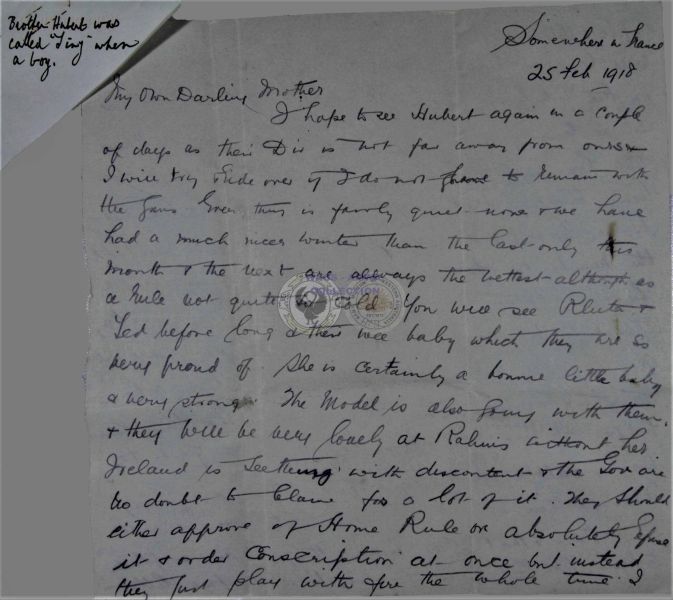 Brother Hubert was
called "Tiny" when
a boy.
Somewhere in France
25 Feb 1918
My Own Darling Mother
I hope to see Hubert again in a couple
of days as their Div is not far away from ours
I will try & ride over if I do not have to remain with
the guns Every thing is fairly quiet now & we have
had a much nicer winter than the last only this
month & the next are always the wettest although as
a rule not quite so cold. You will see &
Ted before long & their wee baby which they are so
very proud of. She is certainly a bonnie little baby
& very strong. The Model is also going with them.
& they will be very lonely at without her
Ireland is seething with discontent & the Gov are
no doubt to blame for a lot of it. They should
either approve of Home Rule or absolutely refuse
it & order Conscription at once but instead
they just play with fire the whole time. I